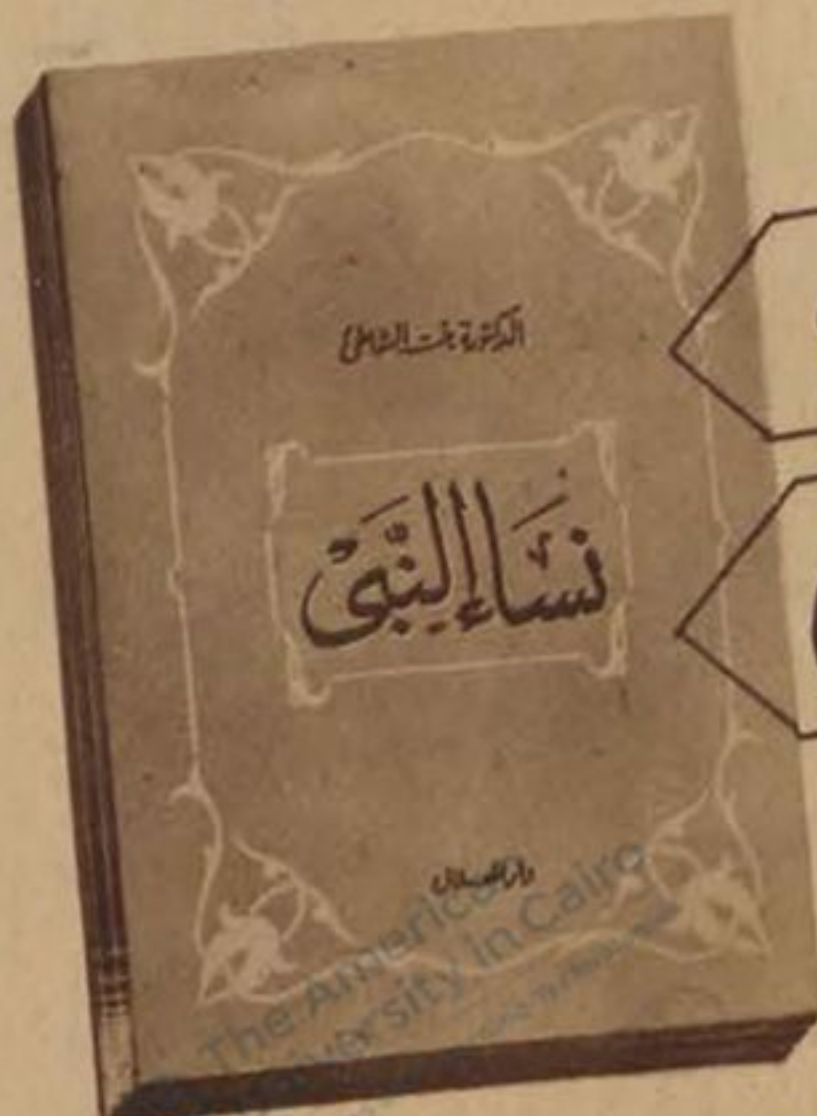 الدكتورة بنت الشاطئ
نساء النبي
دار الهلال
The American
University in Cairo